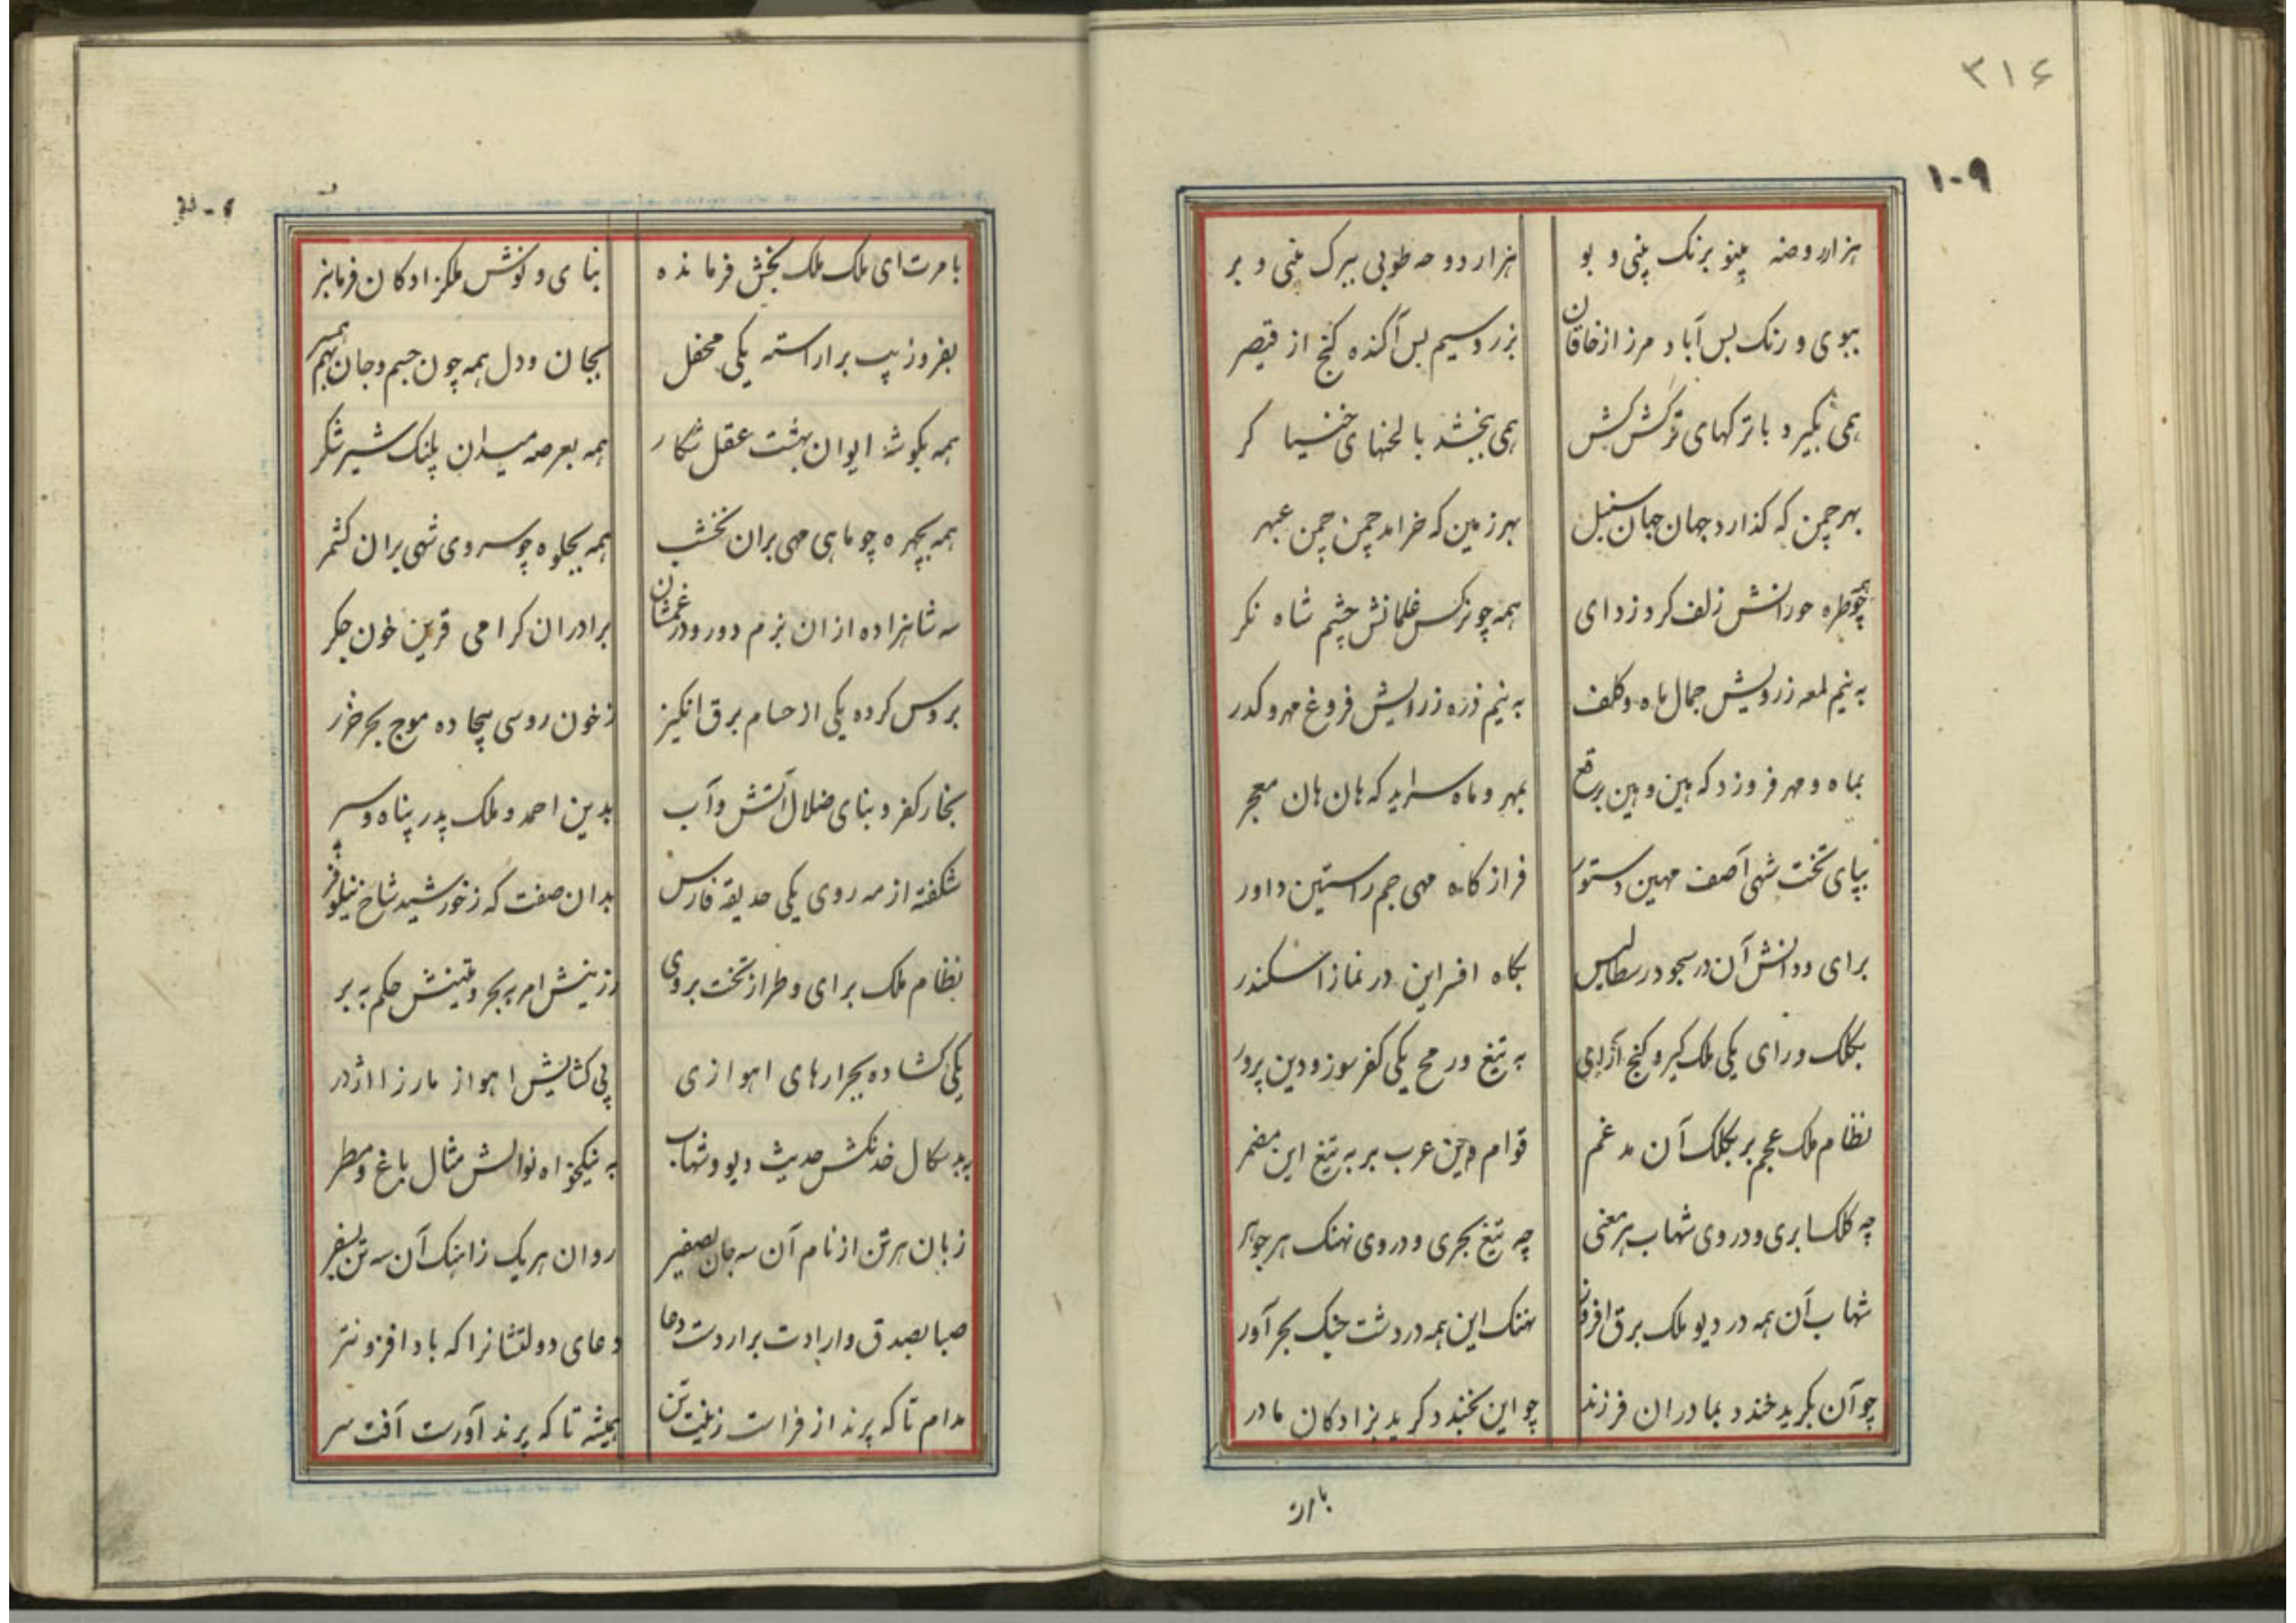 ۳۱۶
۱۰۹
هزار روضه مینو برنک بینی و بو هزار دوحه طوبی ببرک بینی و بر
ببوی و رنک بس آباد مرز از خاقان بزر و سیم بس آکنده کنج از قیصر
همی بکیرد با ترکهای ترکش کش همی ببخشد با لحنهای خنیا کر
بهر چمن که کذارد جهان جهان سنبل بهر زمین که خرامد چمن چمن عبهر
همه چو طره حورانش زلف کرد زدای همه چو نرکس غلمانش چشم شاه نکر
به نیم لمعه ز رویش جمال ماه و کلف به نیم ذره ز رایش فروغ مهر و کدر
بماه و مهر فروزد که هین و هین برقع بمهر و ماه سراید که هان هان معجر
بپای تخت شهی آصف مهین دستور فراز کاه مهی جم راستین داور
برای و دانش آن در سجود رسطالیس بکاه افسر این در نماز اسکندر
بکلک و رای یکی ملک کیر و کنج آرای به تیغ و رمح یکی کفر سوز و دین پرور
نظام ملک عجم بر بکلک آن مدغم قوام دین عرب بر به تیغ این مضمر
چه کلک ابری و در وی شهاب هر معنی چه تیغ بحری و در وی نهنک هر جوهر
شهاب آن همه در دیو ملک برق افروز نهنک این همه در دشت جنک بحر آور
چو آن بکرید خندد بمادران فرزند چو این بخندد کرید بزادکان مادر
بامرت
بامرت ای ملک ملک بخش فرمانده بنای و نوش ملکزادکان فرمانبر
بفر و زیب برآراسته یکی محفل بجان و دل همه چون جسم و جان بهم همسر
همه بکوشه ایوان بهشت عقل شکار همه بعرصه میدان پلنک شیر شکر
همه بچهره چو ماهی مهی بران نخشب همه بجلوه چو سروی شهی بران کشمر
سه شاهزاده از ان بزم دور و در غمشان برادران کرامی قرین خون جکر
بروس کرده یکی از حسام برق انکیز ز خون روسی بیجاده موج بحر خزر
بخار کفر و بنای ضلال آتش و آب بدین احمد و ملک پدر پناه و سپر
شکفته از مه روی یکی حدیقه فارس بدان صفت که ز خورشید شاخ نیلوفر
نظام ملک برای و طراز تخت بروی رزینش امر به بحر و متینش حکم به بر
یکی کشاده بجرارهای اهوازی پی کشایش اهواز مار زا اژدر
به بد سکال خدنکش حدیث دیو و شهاب به نیکخواه نوالش مثال باغ و مطر
زبان هر تن از نام آن سه جان بصفیر روان هر یک زاهنک آن سه تن بسفر
صبا بصدق و ارادت برار دست دعا دعای دولتشانرا که باد افزونتر
مدام تا که پرند از فراست زینت تن همیشه تا که پرند آورست آفت سر